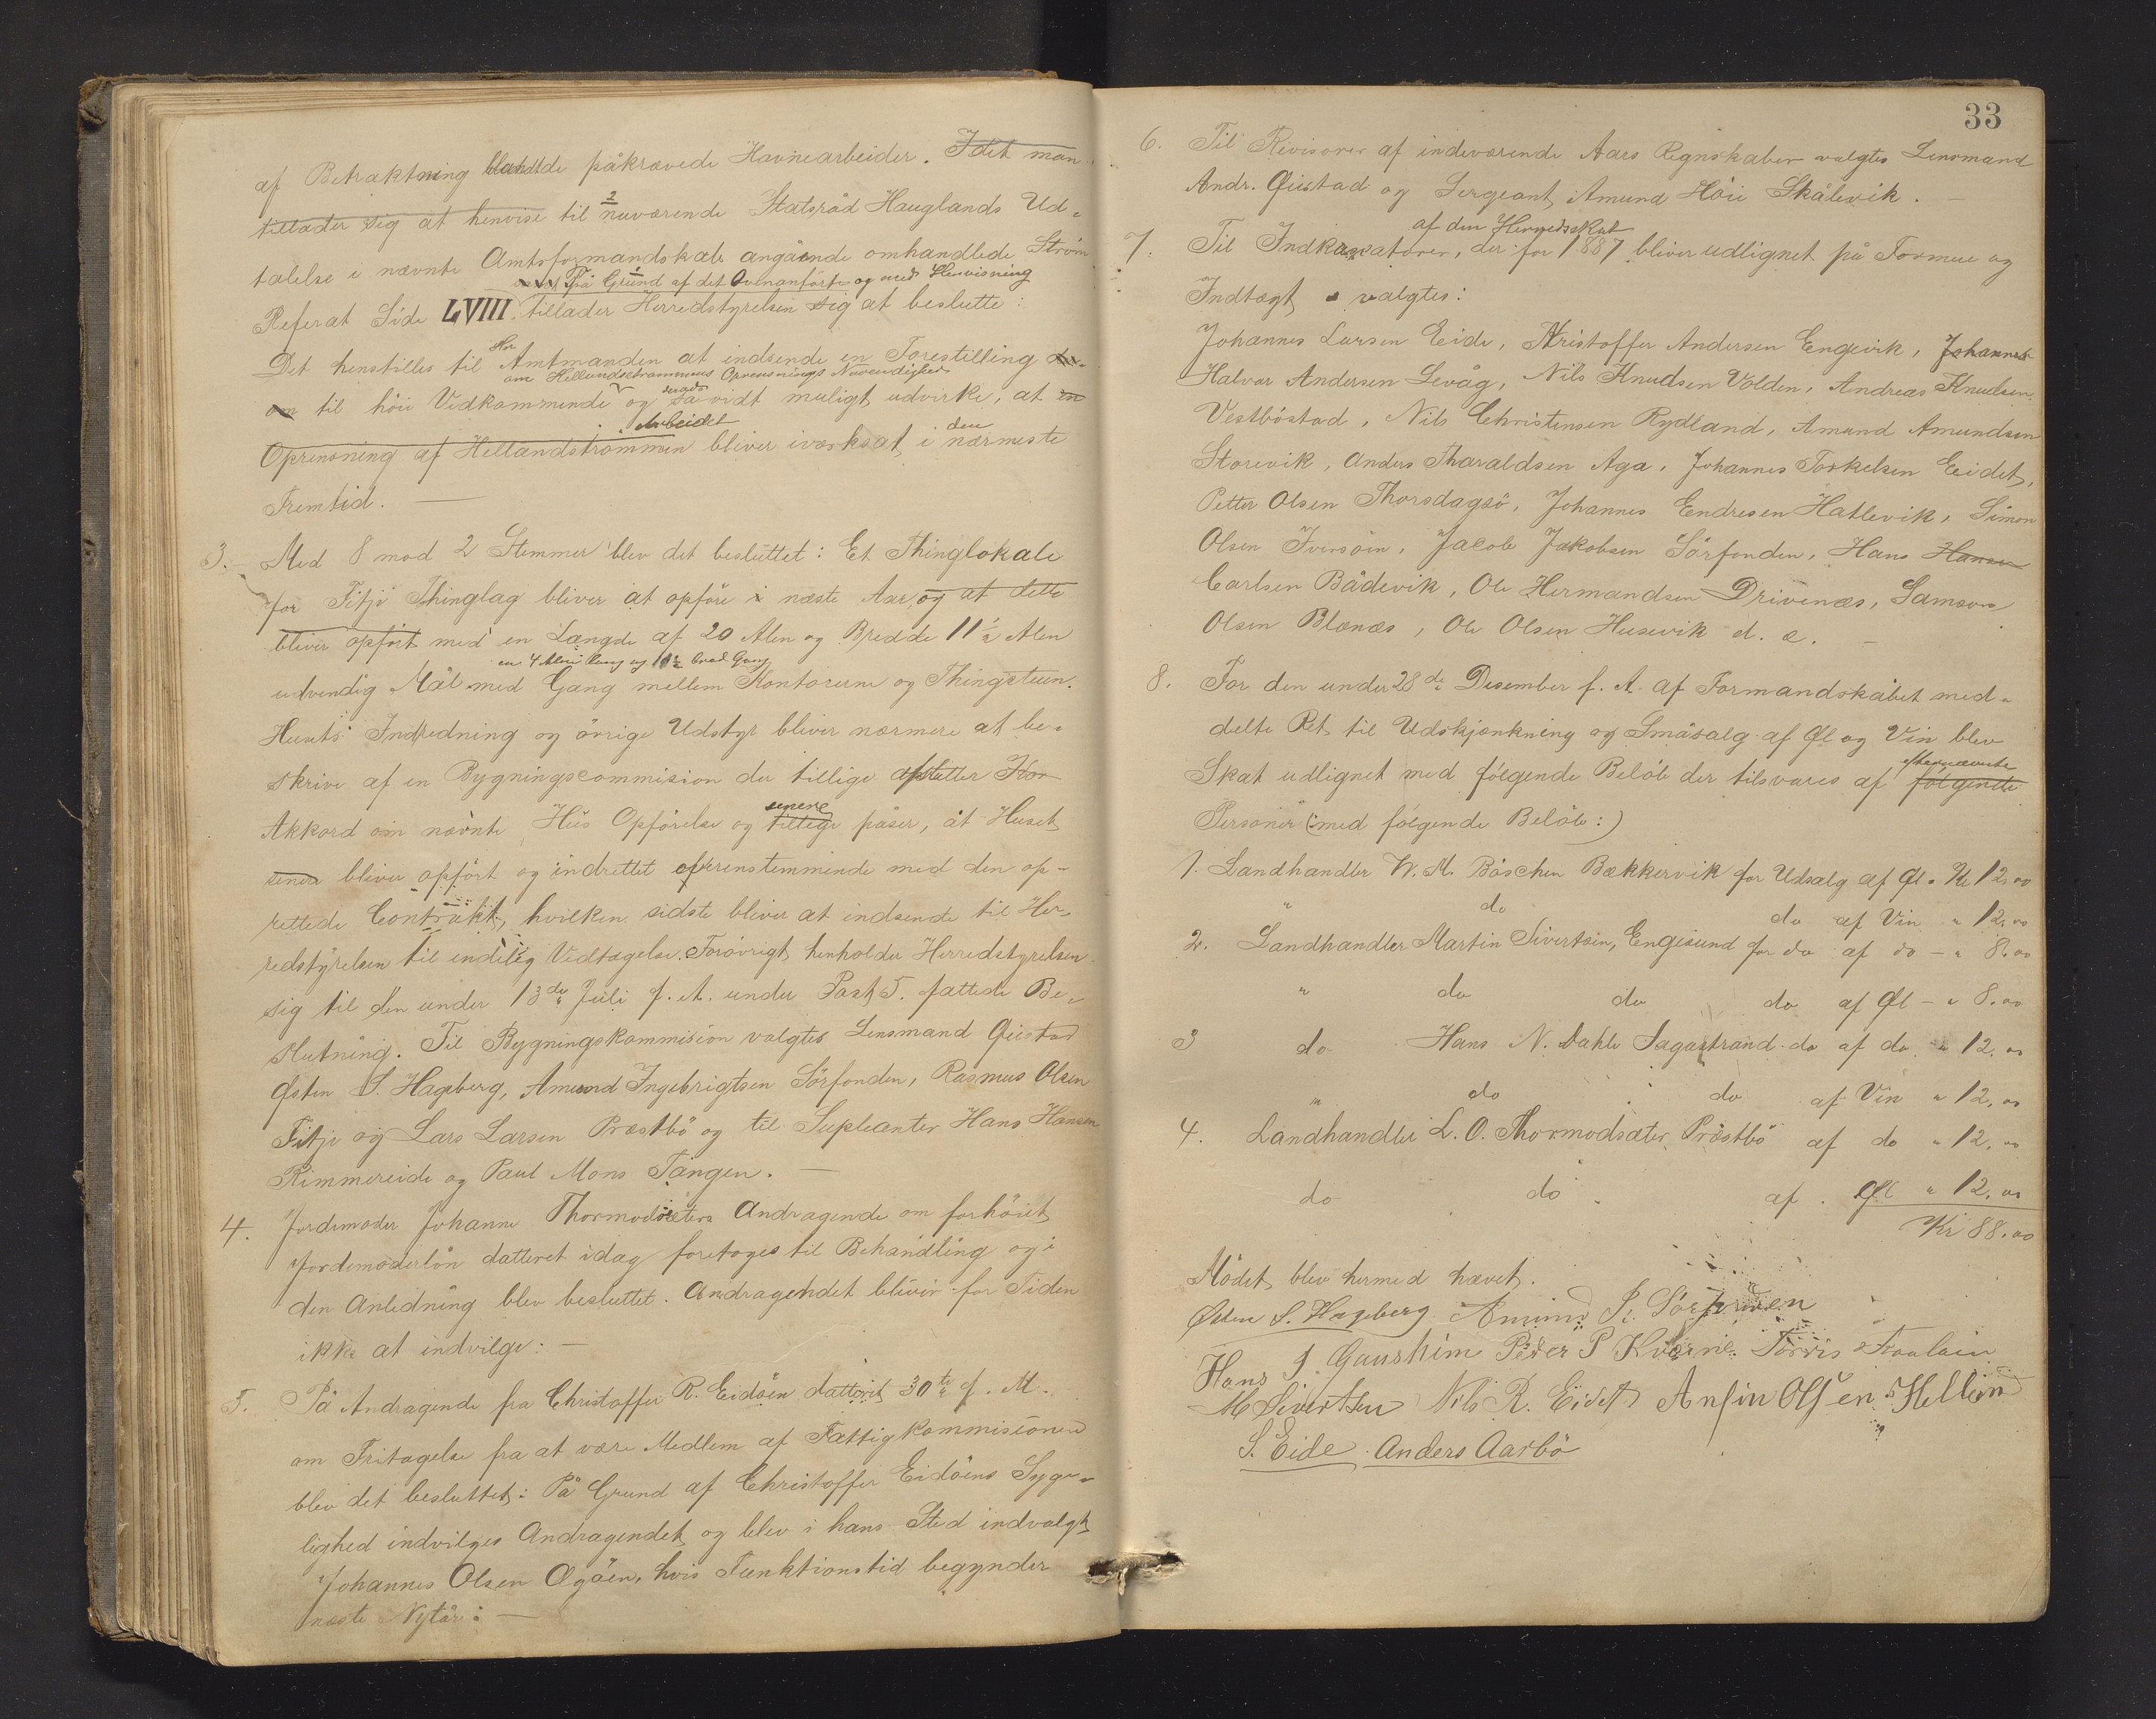 af Betraktning blandt de påkrævede Havnearbeider. Idet man
tillader sig at henvise til nuværende Statsråd Hauglands Ud-
talelse i nævnte Amtsformandskab angående omhandlede Ström
På Grund af det Ovenanförte og med Henvisning
Referat Side LVIII tillader Herredstyrelsen sig at beslutte:
Det henstilles til Hr Amtmanden at indsende en Forestilling
om Hellandströmmens Oprensnings Nøvendighed
om til höie Vedkommende og såvidt muligt udvirke, at en
Arbeidet
Oprensning af Hellandströmmen bliver iværksat i den nærmeste
Fremtid. —
3. Med 8 mod 2 Stemmer blev det besluttet: Et Thinglokale
for Fitje Thinglag bliver at opföre i næste Aar og at dette
bliver opfört med en Længde af 20 Alen og Bredde 11½ Alen
en 4 Alen lang og 1½ bred Gang
udvendig Mål med Gang mellem Kontorerne og Thingsteuen.
Husets Indredning og övrige Udstyr bliver nærmere at be-
skrive af en Bygningscommision der tillige afslutter Kon
Akkord om nævnte Hus Opförelse og tillige senere påser, at Huset
senere bliver opfört og indrettet overensstemmende med den op-
rettede Contrakt, hvilken sidste bliver at indsende til Her-
redstyrelsen til endelig Vedtagelse. Forövrigt henholder Herredstyrelsen
sig til den under 13de Juli f. A. under Post 5. fattede Be-
slutning. Til Bygningskommision valgtes Lensmand Qvistad
Østen S. Hageberg, Amund Ingebrigtsen Sörfonden, Rasmus Olsen
Fitje og Lars Larsen Præstbö og til Supleanter Hans Hansen
Rimmereide og Paul Mons Tangen. —
4. Jordemoder Johanne Thormodsæters Andragende om forhöiet
Jordemoderlön datteret idag foretoges til Behandling og i
den Anledning blev besluttet. Andragendet bliver for Tiden
ikke at indvilge: —
5. På Andragende fra Christoffer R. Eidöen datteret 30te f. M.
om Fritagelse fra at være Medlem af Fattigkommisionen
blev det besluttet: På Grund af Christoffer Eidöens Syge-
lighed indvilges Andragendet og blev i hans Sted indvalgt
Johannes Olsen Øgöen, hvis Funktionstid begynder
næste Nytår: —
33
6. Til Revisorer af indeværende Aars Regnskaber valgtes Lensmand
Andr. Qvistad og Sergeant Amund Höie Skålevik. —
af den Herredsskat
7. Til Indkassatorer, der for 1887 bliver udlignet på Formue og
Indtægt valgtes:
Johannes Larsen Eide, Kristoffer Andersen Engevik, Johannes
Halvor Andersen Levåg, Nils Knudsen Volden, Andreas Knudsen
Vestböstad, Nils Christensen Rydland, Amund Amundsen
Storevik, Anders Tharaldsen Aga, Johannes Torkelsen Eidet,
Petter Olsen Thorsdagsö, Johannes Endresen Hatlevik, Simon
Olsen Iversöen, Jacob Jakobsen Sörfonden, Hans Hansen
Carlsen Bådevik, Ole Hermandsen Drivenæs, Samson
Olsen Blænæs, Ole Olsen Husevik d. æ. —
8. For den under 28de Desember f. A. af Formandskabet med-
delte Ret til Udskjænkning og Småsalg af Øl og Vin blev
efternævnte
Skat udlignet med fölgende Belöb der tilsvares af fölgende
Personer (: med fölgende Belöb :)
1. Landhandler W. M. Böschen Bækkervik for Udsalg af Øl " Kr 12,00
" do do af Vin " 12,00
2. Landhandler Martin Sivertsen, Engesund for do af do — " 8,00
" do do do af Øl — " 8,00
3 do Hans N. Dahle Sagastrand do af do " 12,00
" do do af Vin " 12,00
4. Landhandler L. O. Thormodsæter Præstbö af do " 12,00
do do af Øl " 12,00
Kr 88,00
Mödet blev hermed hævet.
Østen S. Hageberg Amund I. Sörfonden
Hans J. Gaushim Peder P Kværne Torris
M Sivertsen Nils R. Eidet Anfin Olsen Hellen
S. Eide Anders Aarbö